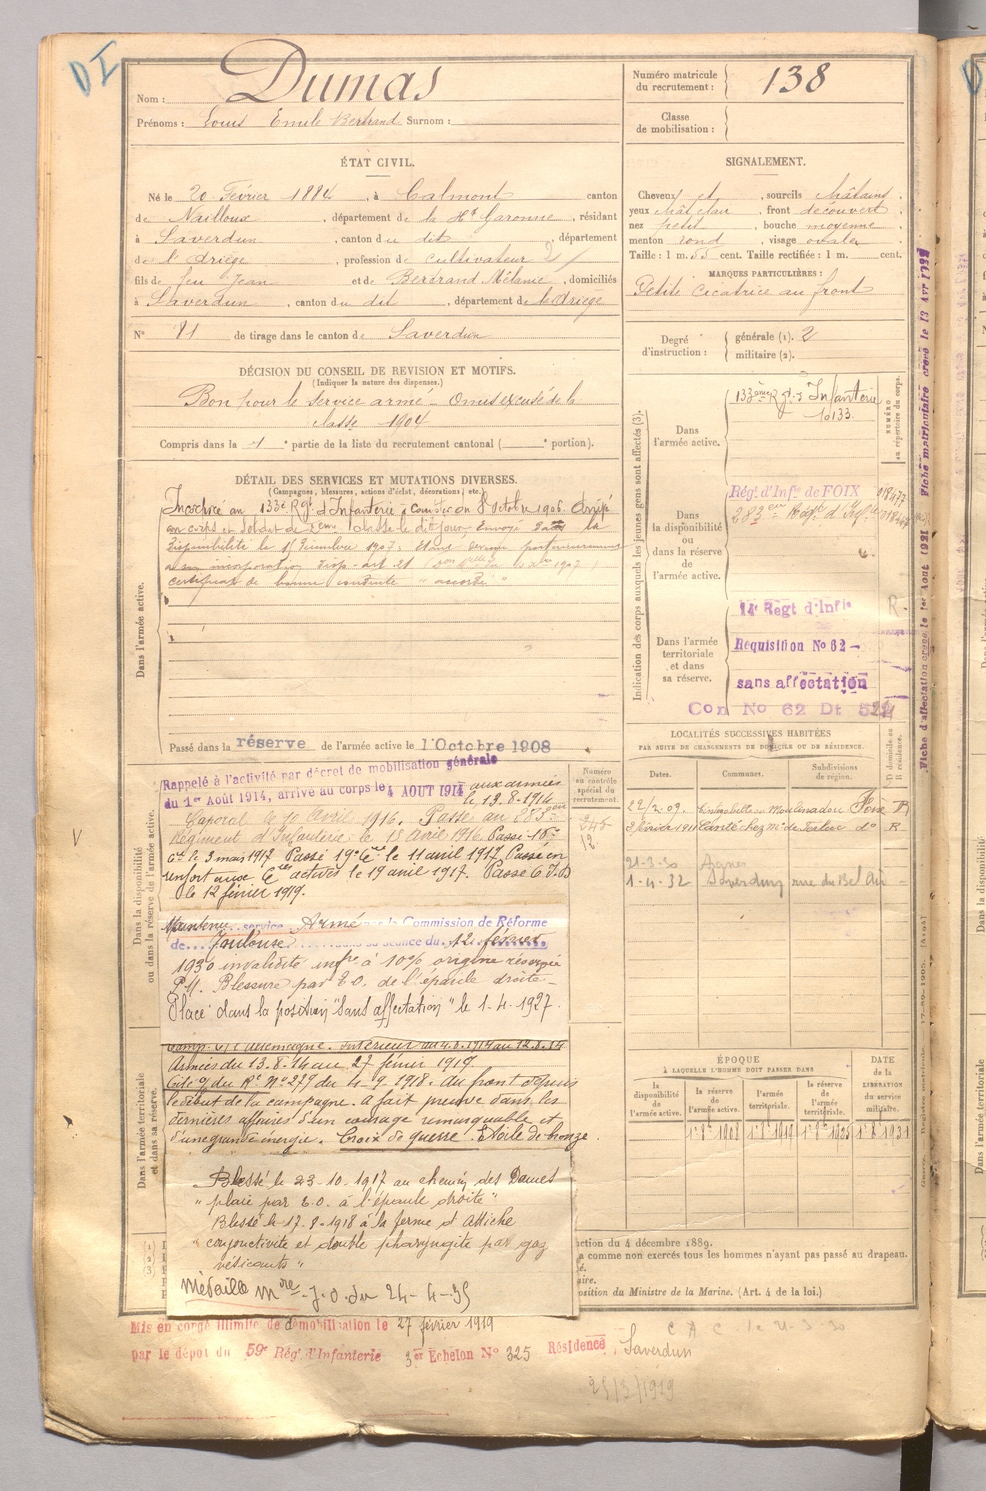 D I
Nom : Dumas
Prénoms : Louis Émile Bertrand Surnom :
Numéro matricule du recrutement : 138
Classe de mobilisation :
ÉTAT CIVIL.
Né le 20 Février 1884, à Calmont canton
de Nailloux, département de la Hte Garonne, résidant
à Saverdun, canton du dit, département
de l'Ariège, profession de cultivateur
fils de feu Jean et de Bertrand Mélanie, domiciliés
à Saverdun, canton du dit, département de l'Ariège
N° 81 de tirage dans le canton de Saverdun
SIGNALEMENT.
Cheveux et, sourcils châtains
yeux chât clair, front découvert
nez petit, bouche moyenne
menton rond, visage ovale
Taille : 1 m. 55 cent. Taille rectifiée : 1 m. cent.
MARQUES PARTICULIÈRES :
Petite cicatrice au front
Degré d'instruction : générale (1). 2
militaire (2).
DÉCISION DU CONSEIL DE REVISION ET MOTIFS.
(Indiquer la nature des dispenses.)
Bon pour le service armé – Omis excusé de la
classe 1904
Compris dans la 1e partie de la liste du recrutement cantonal ( e portion).
DÉTAIL DES SERVICES ET MUTATIONS DIVERSES.
(Campagnes, blessures, actions d'éclat, décorations, etc.)
Dans l'armée active.
Incorporé au 133e Rgt d'Infanterie à compter du 8 octobre 1906. Arrivé
au corps et soldat de 2eme classe le dit jour. Envoyé dans la
disponibilité le 1 Décembre 1907. Étant devenu postérieurement
à son incorporation disp. art. 21
certificat de bonne conduite "accordé"
Passé dans la réserve de l'armée active le 1 Octobre 1908
Dans la disponibilité ou dans la réserve de l'armée active.
Rappelé à l'activité par décret de mobilisation générale
du 1er Août 1914, arrive au corps le 4 AOUT 1914 aux armées
le 13.8.1914
Caporal le 10 Avril 1916. Passé au 283eme
Régiment d'Infanterie le 18 Avril 1916. Passé 16e
Cie le 3 mars 1917 Passé 19e Cie le 11 avril 1917 Passé en
renfort aux Cies actives le 19 avril 1917. Passé C.I.D
le 12 février 1919.
Maintenu service Armé par la Commission de Réforme
de Toulouse dans sa séance du 12 février
1930 invalidité infre à 10%
P.M. Blessure par E.O. de l'épaule droite –
Placé dans la position "Sans affectation" le 1-4-1927.
Dans l'armée territoriale et dans sa réserve.
Camp. C/ l'Allemagne. Intérieur du 4.8.1914 au 12.8.14
Armées du 13.8.14 au 27 février 1919
Cité o/ du Rt N° 275 du 4-9-1918. Au front depuis
le début de la campagne. A fait preuve dans les
dernières affaires d'un courage remarquable et
d'une grande énergie. Croix de guerre. Étoile de bronze.
Blessé le 23-10-1917 au chemin des Dames
"plaie par E.O. à l'épaule droite"
Blessé le 17-8-1918 à la ferme d'Attiche
"conjonctivite et double pharyngite par gaz
vésicants"
Médaille Mre J.O. du 24-4-35
Mis en congé illimité de démobilisation le 27 février 1919
par le dépôt du 59e Rég. d'Infanterie 3er Echelon N° 325 Résidence Saverdun
C A C le 21-3-30
25/3/1919
Indication des corps auxquels les jeunes gens sont affectés (3).
Dans l'armée active.
133ème Rgt d'Infanterie
NUMÉRO au répertoire du corps.
Dans la disponibilité ou dans la réserve de l'armée active.
Régt d'Infie de FOIX
283eme Régt d'Infie
Dans l'armée territoriale et dans sa réserve.
14e Regt d'Infie
Requisition No 62 –
sans affectation
Con No 62 Dt
R.
LOCALITÉS SUCCESSIVES HABITÉES
PAR SUITE DE CHANGEMENTS DE DOMICILE OU DE RÉSIDENCE.
Numéro au contrôle spécial du recrutement.
Dates. Communes. Subdivisions de région.
D domicile ou R résidence.
22/2-09. Foix R
3 février 1911 Canté chez Mr de do R
21-3-30
1-4-32 Saverdun rue du Bel Air
ÉPOQUE
À LAQUELLE L'HOMME DOIT PASSER DANS
la disponibilité de l'armée active.
la réserve de l'armée active. 1er 8bre 1908
l'armée territoriale.
la réserve de l'armée territoriale.
DATE de la LIBÉRATION du service militaire.
Fiche d'affectation créée le 1er Aout 1921 Fiche matriculaire créée le 13 Avr
ction du 4 décembre 1889.
a comme non exercés tous les hommes n'ayant pas passé au drapeau.
osition du Ministre de la Marine. (Art. 4 de la loi.)